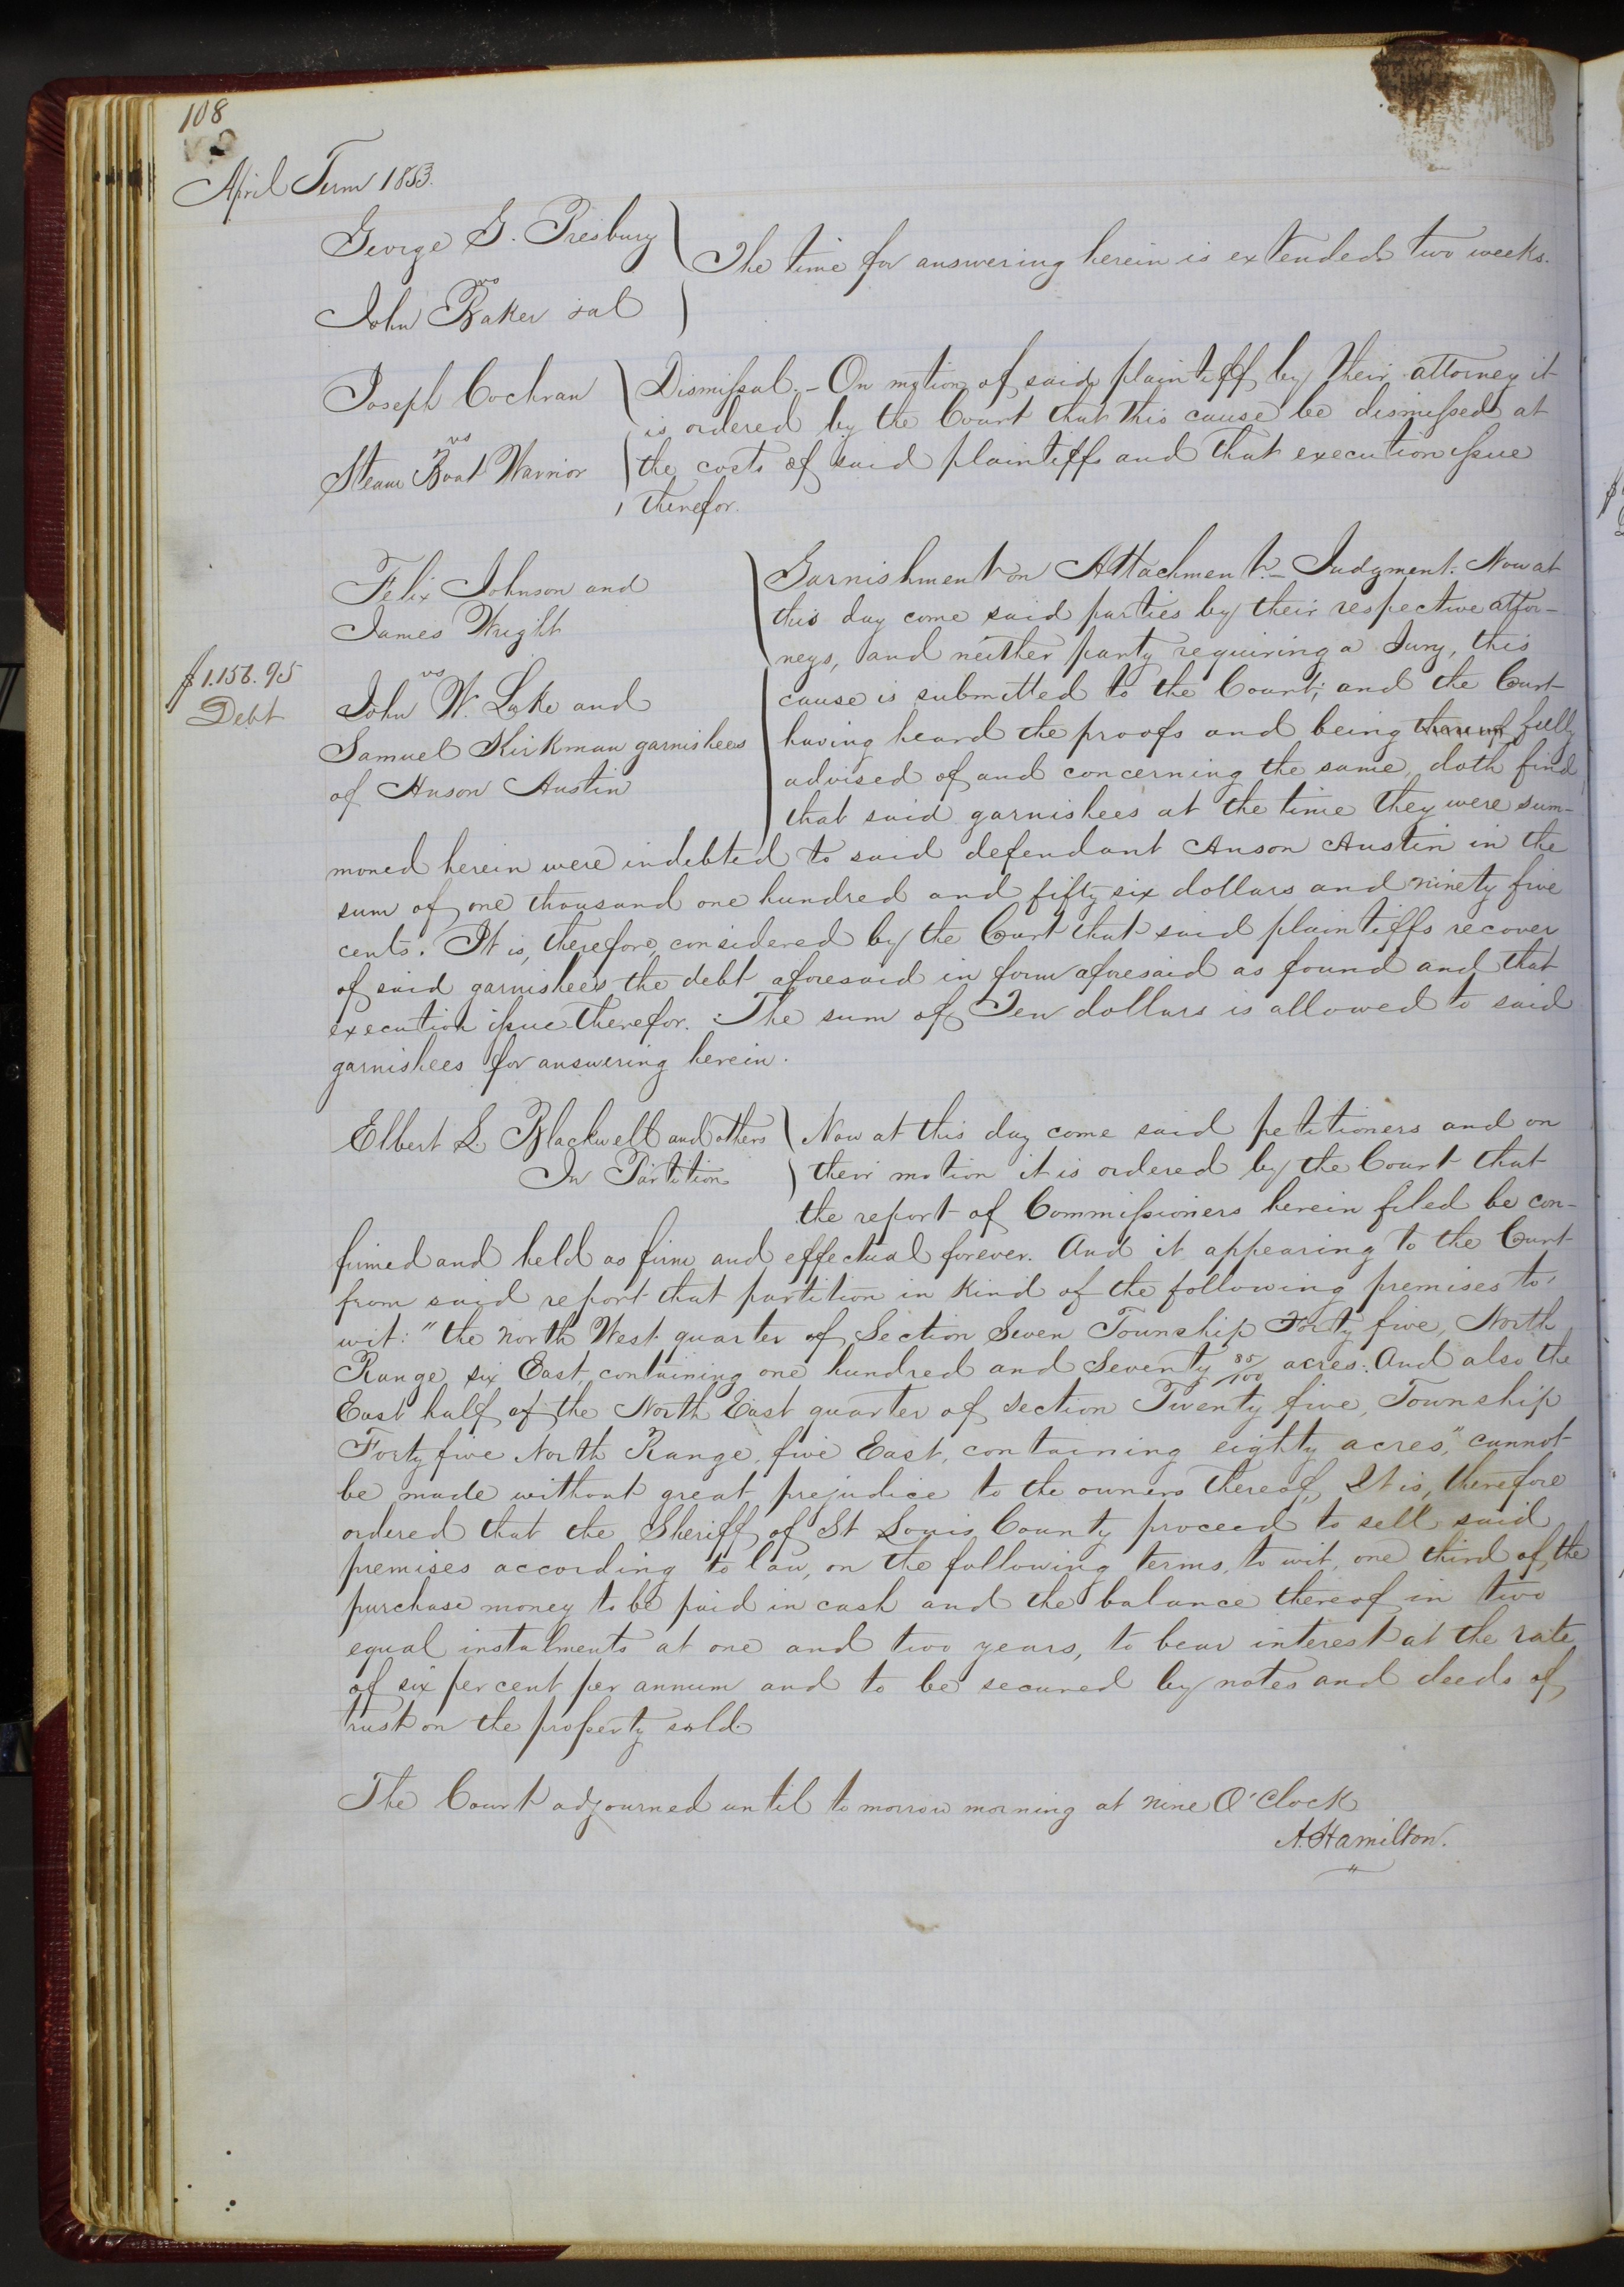 108
April Term 1853.
George G. Presbury
vs
John Baker &al
The time for answering herein is extended two weeks.
Joseph Cochran
vs
Steam Boat Warrior
Dismissal. - On motion of said plaintiff by their attorney it
is ordered by the Court that this cause be dismissed at
the costs of said plaintiffs and that execution issue
therefor.
Felix Johnson and
James Wright
vs
John W. Luke and
Samuel Kirkman garnishees
of Anson Austin
$1.156.95
Debt
Garnishment on Attachment. - Judgment. Now at
this day come said parties by their respective attor-
neys, and neither party requiring a Jury, this
cause is submitted to the Court; and the Court
having heard the proofs and being fully
advised of and concerning the same, doth find
that said garnishees at the time they were sum-
moned herein were indebted to said defendant Anson Austin in the
sum of one thousand one hundred and fifty six dollars and ninety five
cents. It is, therefore, considered by the Court that said plaintiffs recover
of said garnishees the debt aforesaid in form aforesaid as found and that
execution issue therefor. The sum of Ten dollars is allowed to said
garnishees for answering herein.
Elbert L. Blackwell and others
In Partition
Now at this day come said petitioners and on
their motion it is ordered by the Court that
the report of Commissioners herein filed be con-
firmed and held as firm and effectual forever. And it appearing to the Court
from said report that partition in kind of the following premises to
wit: "the North West quarter of Section Seven Township Forty five, North
Range six East, containing one hundred and Seventy 85/100 acres: And also the
East half of the North East quarter of section Twenty five, Township
Forty five North Range, five East, containing eighty acres," cannot
be made without great prejudice to the owners thereof, It is, therefore
ordered that the Sheriff of St Louis County proceed to sell said
premises according to law, on the following terms, to wit, one third of the
purchase money to be paid in cash and the balance thereof in two
equal instalments at one and two years, to bear interest at the rate
of six per cent per annum and to be secured by notes and deeds of
trust on the property sold.
The Court adjourned until to morrow morning at nine O'Clock
A. Hamilton.